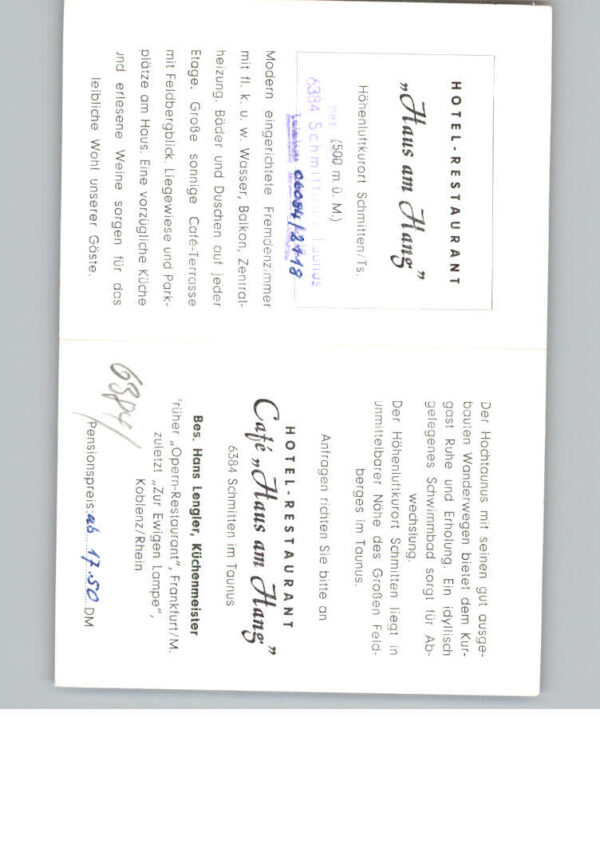 HOTEL-RESTAURANT
„Haus am Hang”
Höhenluftkurort Schmitten/Ts.
(500 m ü. M.)
6384 Schmitten Taunus
Telefon 06084/2118
Modern eingerichtete Fremdenzimmer
mit fl. k. u. w. Wasser, Balkon, Zentral-
heizung. Bäder und Duschen auf jeder
Etage. Große sonnige Café-Terrasse
mit Feldbergblick. Liegewiese und Park-
plätze am Haus. Eine vorzügliche Küche
und erlesene Weine sorgen für das
leibliche Wohl unserer Gäste.
Der Hochtaunus mit seinen gut ausge-
bauten Wanderwegen bietet dem Kur-
gast Ruhe und Erholung. Ein idyllisch
gelegenes Schwimmbad sorgt für Ab-
wechslung.
Der Höhenluftkurort Schmitten liegt in
unmittelbarer Nähe des Großen Feld-
berges im Taunus.
Anfragen richten Sie bitte an
HOTEL-RESTAURANT
Café „Haus am Hang”
6384 Schmitten im Taunus
Bes. Hans Lengler, Küchenmeister
früher „Opern-Restaurant”, Frankfurt/M.
zuletzt „Zur Ewigen Lampe”,
Koblenz/Rhein
Pensionspreis: ab 17.50 DM